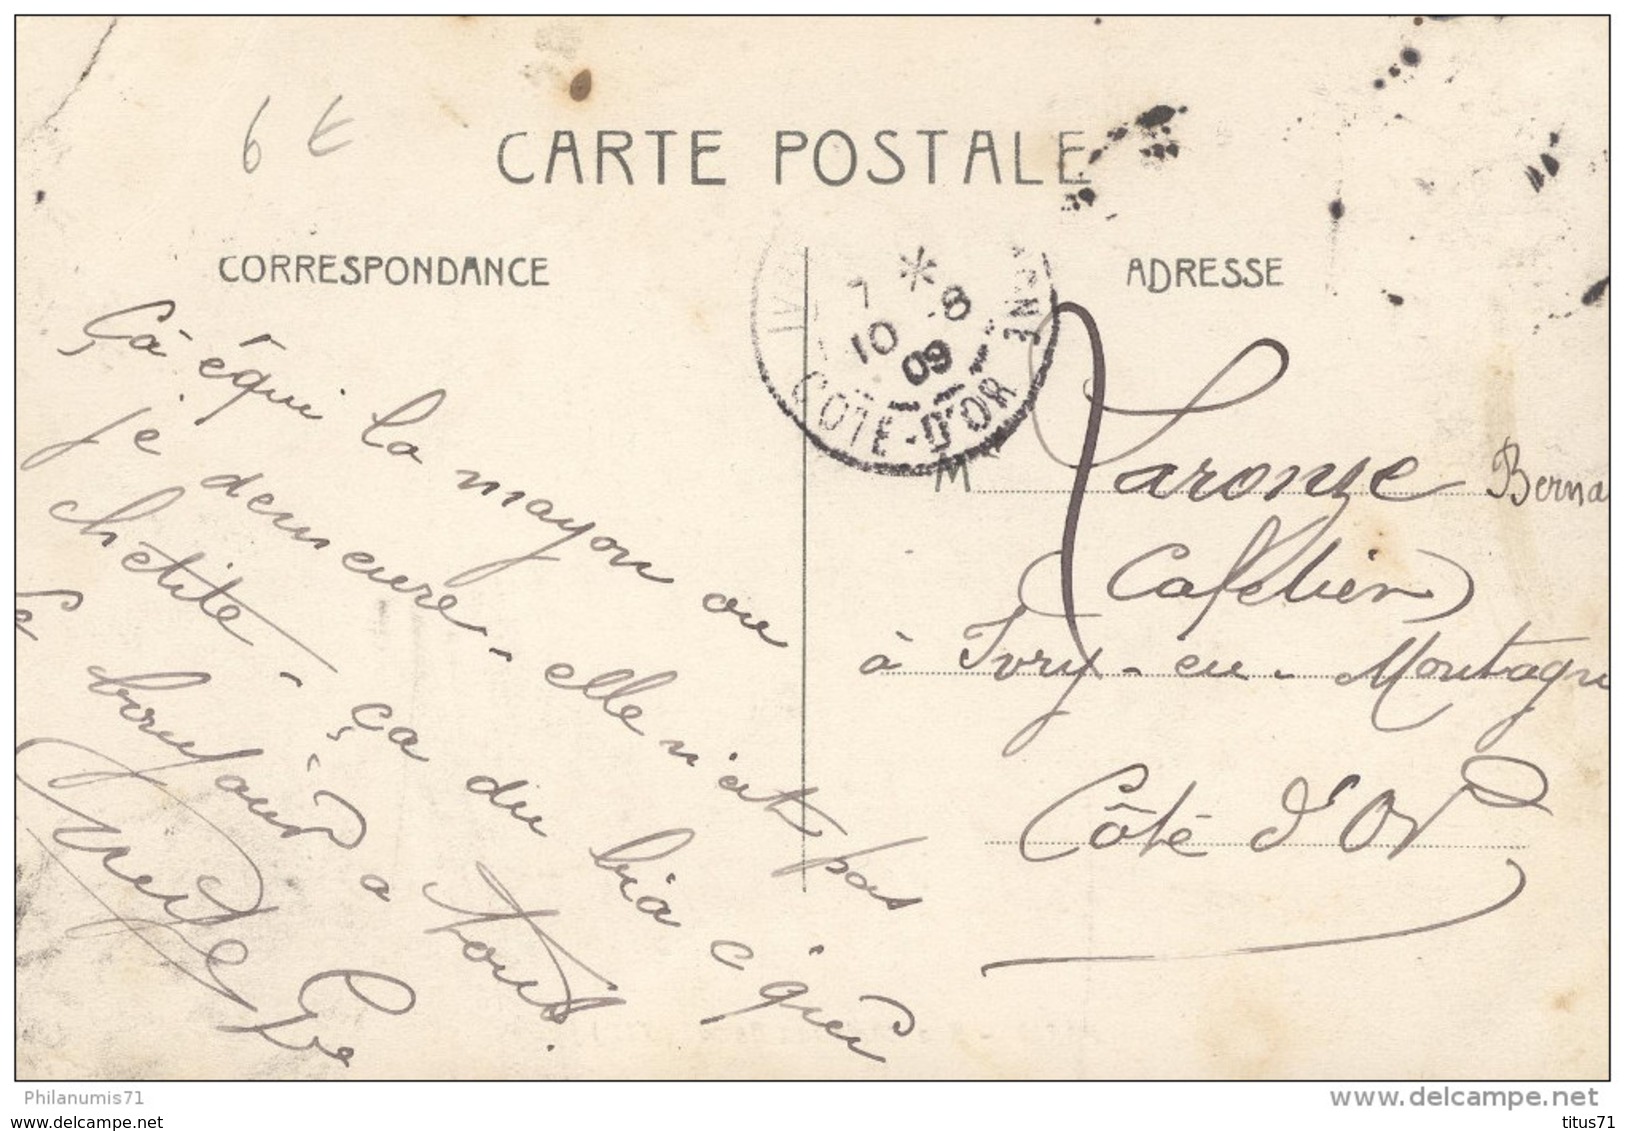 6 €
CARTE POSTALE
CORRESPONDANCE
ADRESSE
7 * 8
10 09
CÔTE-D'OR
Çà équi la mayou ou
je demeure - elle n'eat pas
chetite - ça du bia c'qui
Le bonjour a tout.
Mr Laronze Berna
(Cafetier)
à Ivry-en-Montagn
Côté d'Or
Philanumis71
www.delcampe.net
www.delcampe.net
titus71